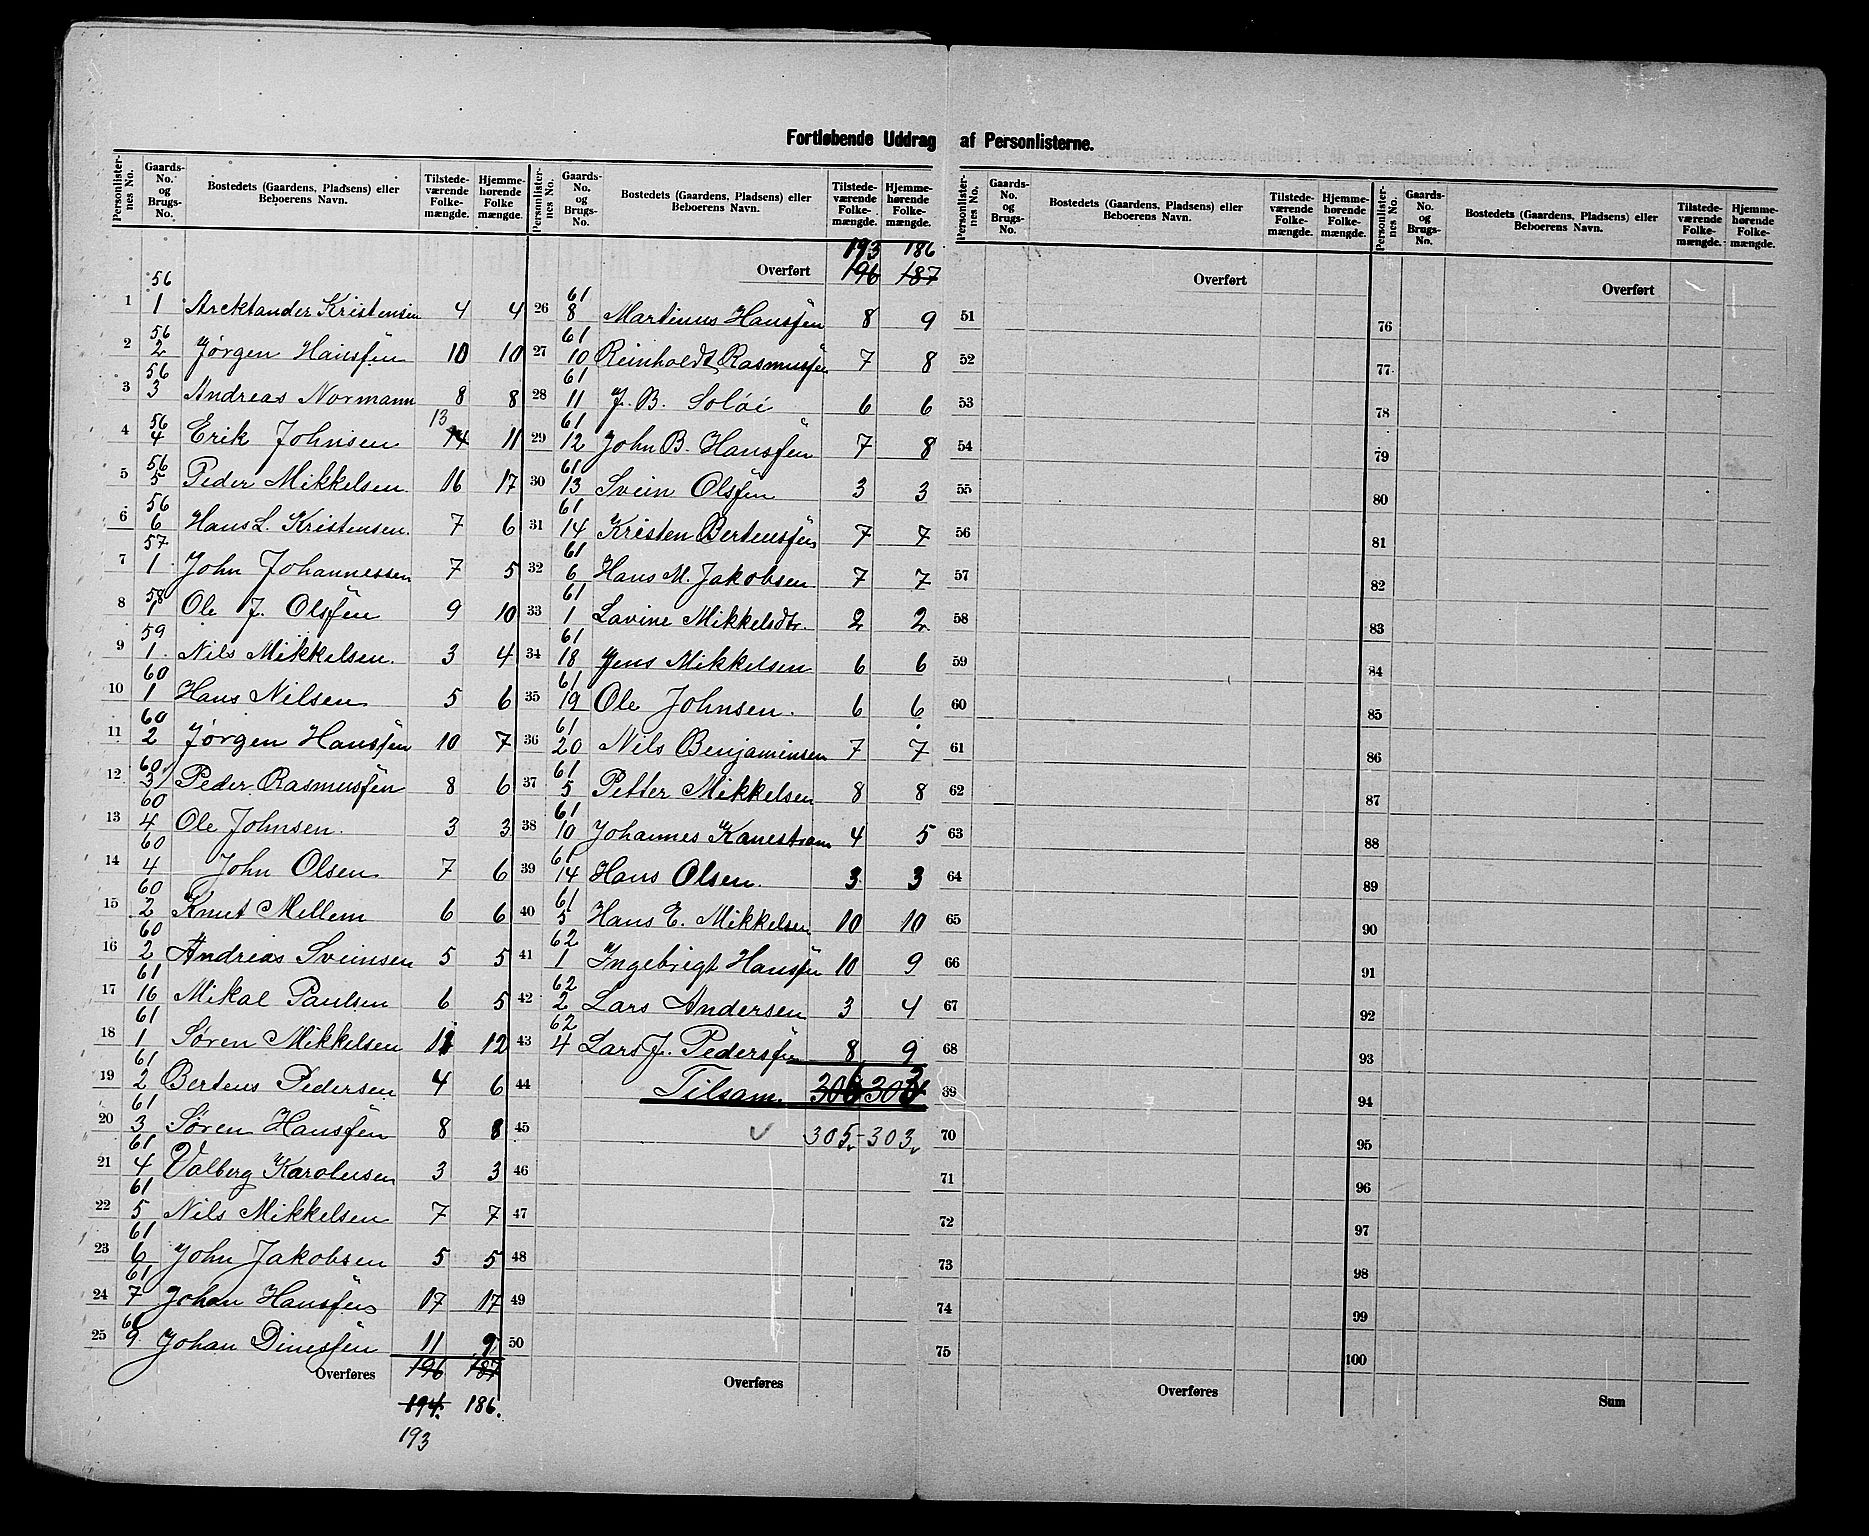 Fortløbende Uddrag af Personlisterne.
Personlister-nes No. Gaards-No. og Brugs-No. Bostedets (Gaardens, Pladsens) eller Beboerens Navn. Tilstede-værende Folke-mængde. Hjemme-hørende Folke mængde.
1 56 1 Arcktander Kristensen 4 4
2 56 2 Jørgen Hansfen 10 10
3 56 3 Andreas Normann 8 8
4 56 4 Erik Johnsen 14 13 11
5 56 5 Peder Mikkelsen 16 17
6 56 6 Hans L. Kristensen. 7 6
7 57 1 John Johannessen 7 5
8 58 1 Ole J. Olsfen 9 10
9 59 1. Nils Mikkelsen. 3 4
10 60 1 Hans Nilsen 5 6
11 60 2 Jørgen Hansfen 10 7
12 60 3 Peder Rasmusfen 8 6
13 60 4 Ole Johnsen. 3 3
14 60 4 John Olsen 7 6
15 60 2 Knut Mellem 6 6
16 60 2 Andreas Sveinsen 5 5
17 61 16 Mikal Paulsen 6 5
18 61 1 Søren Mikkelsen 11 12
19 61 2 Bertens Pedersen 4 6
20 61 3 Søren Hansfen 8 8
21 61 4 Valberg Karolusen 3 3
22 61 5 Nils Mikkelsen 7 7
23 61 6 John Jakobsen 5 5
24 61 7 Johan Hansfen 17 17
25 61 9 Johan Dinesfen 11 9
Overføres 196 187
194. 186.
193
Personlister-nes No. Gaards-No. og Brugs-No. Bostedets (Gaardens, Pladsens) eller Beboerens Navn. Tilstede-værende Folke-mængde. Hjemme-hørende Folke-mængde.
193 186
Overført 196 187
26 61 8 Martinus Hansfen 8 9
27 61 10 Reinholdt Rasmusfen 7 8
28 61 11 J. B. Soløi 6 6
29 61 12 John B. Hansfen 7 8
30 61 13 Svein Olsfen 3 3
31 61 14 Kristen Bertensfen 7 7
32 61 6 Hans M. Jakobsen 7 7
33 61 1 Lavine Mikkelsdtr. 2 2
34 61 18 Jens Mikkelsen 6 6
35 61 19 Ole Johnsen. 6 6
36 61 20 Nils Benjaminsen 7 7
37 61 5 Petter Mikkelsen 8 8
38 61 10 Johannes Kanestrøm 4 5
39 61 14 Hans Olsen. 3 3
40 61 5 Hans E. Mikkelsen 10 10
41 62 1 Ingebrigt Hansfen 10 9
42 62 2 Lars Andersen 3 4
43 62 4 Lars J. Pedersfen 8 9
44 Tilsam. 306 303
45 305 - 303
46
47
48
49
50
Overføres
Personlister-nes No. Gaards-No. og Brugs-No. Bostedets (Gaardens, Pladsens) eller Beboerens Navn. Tilstede-værende Folke-mængde. Hjemme-hørende Folke-mængde.
Overført
51
52
53
54
55
56
57
58
59
60
61
62
63
64
65
66
67
68
39
70
71
72
73
74
75
Overføres
Personlister-nes No. Gaards-No. og Brugs-No. Bostedets (Gaardens, Pladsens) eller Beboerens Navn. Tilstede-værende Folke-mængde. Hjemme-hørende Folke-mængde.
Overført
76
77
78
79
80
81
82
83
84
85
86
87
88
89
90
91
92
93
94
95
96
97
98
99
100
Sum